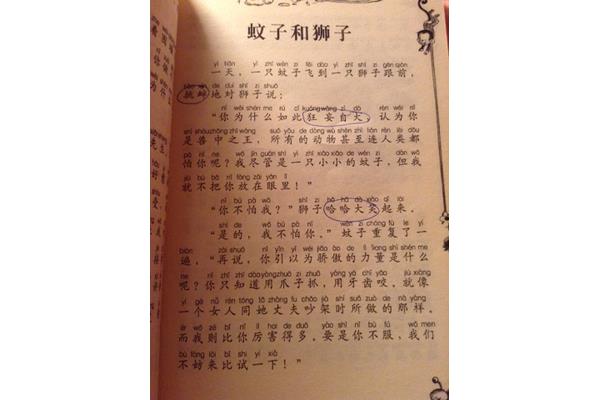 蚊子和狮子
yì tiān yì zhī wén zi fēi dào yì zhī shī zi gēn qián
一天，一只蚊子飞到一只狮子跟前，
de duì shī zi shuō
挑衅地对狮子说：
nǐ wèi shén me rú cǐ kuáng wàng zì dà rèn wéi nǐ
“你为什么如此狂妄自大，认为你
shì shòu zhōng zhī wáng suǒ yǒu de dòng wù shèn zhì lián rén lèi dōu
是兽中之王，所有的动物甚至连人类都
pà nǐ ne wǒ jǐn guǎn shì yì zhī xiǎo xiǎo de wén zi dàn wǒ
怕你呢？我尽管是一只小小的蚊子，但我
jiù bù bǎ nǐ fàng zài yǎn lǐ
就不把你放在眼里！”
nǐ bú pà wǒ shī zi hā hā dà xiào qǐ lái
“你不怕我？”狮子哈哈大笑起来。
shì de wǒ bú pà nǐ wén zi chóng fù le yí
“是的，我不怕你。”蚊子重复了一
biàn zài shuō nǐ yǐn yǐ wéi jiāo ào de lì liang shì shén me
遍，“再说，你引以为骄傲的力量是什么
ne nǐ zhǐ zhī dào yòng zhuǎ zi zhuā yòng yá chǐ yǎo jiù xiàng
呢？你只知道用爪子抓，用牙齿咬，就像
yí gè nǚ rén tóng tā zhàng fu chǎo jià shí suǒ zuò de nà yàng
一个女人同她丈夫吵架时所做的那样。
ér wǒ zé bǐ nǐ lì hai de duō yào shì nǐ bù fú wǒ men
而我则比你厉害得多。要是你不服，我们
bù fáng lái bǐ shì yí xià
不妨来比试一下！”